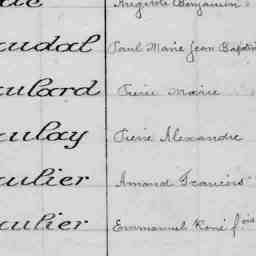 Benjamin
audal Paul Marie Jean Baptis
aulard Pierre Marie
aulay Pierre Alexandre
aulier Amand François
aulier Emmanuel René f.ois